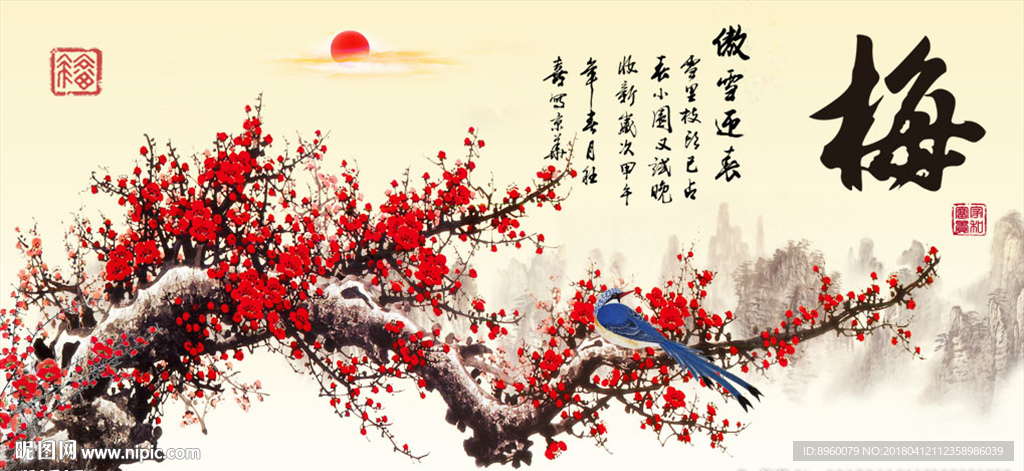 梅
傲雪迎春
雪里枝頭已占
春小園又試晚
妝新歲次甲午
年春月社
喜寫京華
福
家和
富貴
昵图网 www.nipic.com
ID:8960079 NO:20180412112358986039